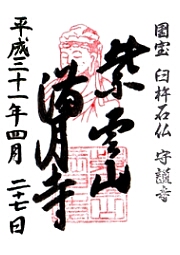 国宝 臼杵石仏 守護寺
紫雲山
満月寺
平成三十一年四月二十七日